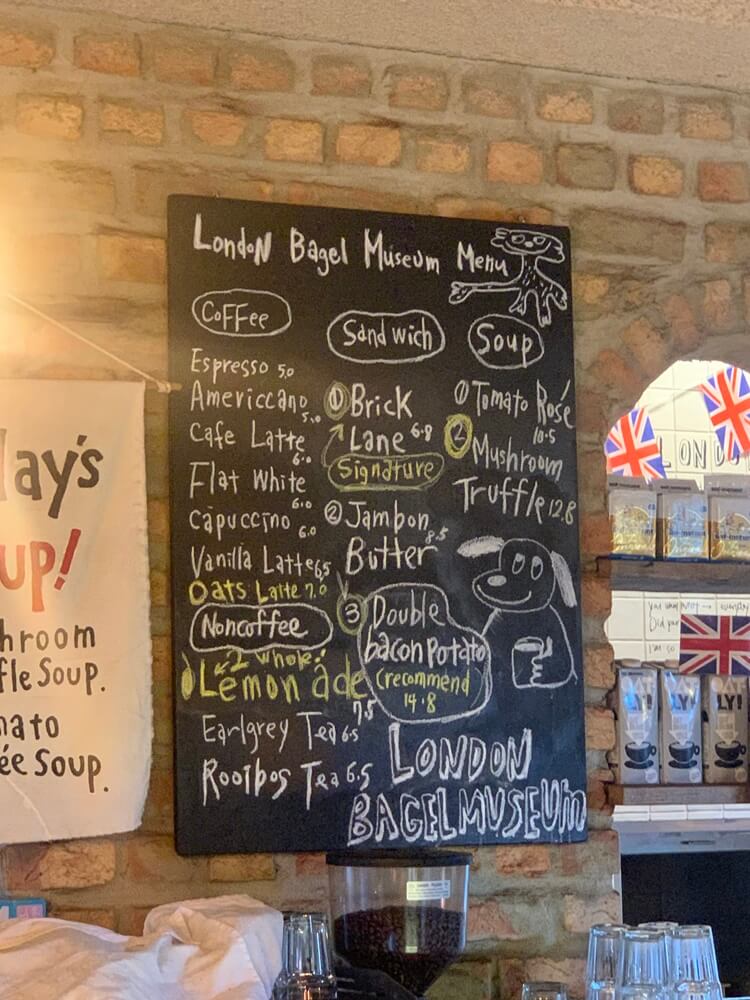 London Bagel Museum Menu
Coffee
Espresso 5.0
Americcano 5.0
Cafe Latte 6.0
Flat White 6.0
Capuccino 6.0
Vanilla Latte 6.5
Oats Latte 7.0
Noncoffee
2 whole!
Lemon ade 7.5
Earlgrey Tea 6.5
Rooibos Tea 6.5
Sandwich
① Brick
Lane 6.8
Signature
② Jambon
Butter 8.5
③ Double
bacon Potato
(recommend
14.8
Soup
① Tomato Rosé
10.5
② Mushroom
Truffle 12.8
LONDON
BAGEL MUSEUM
ay's
up!
hroom
fle Soup.
ato
ée Soup.
LONDO
LY!
LY!
LY!